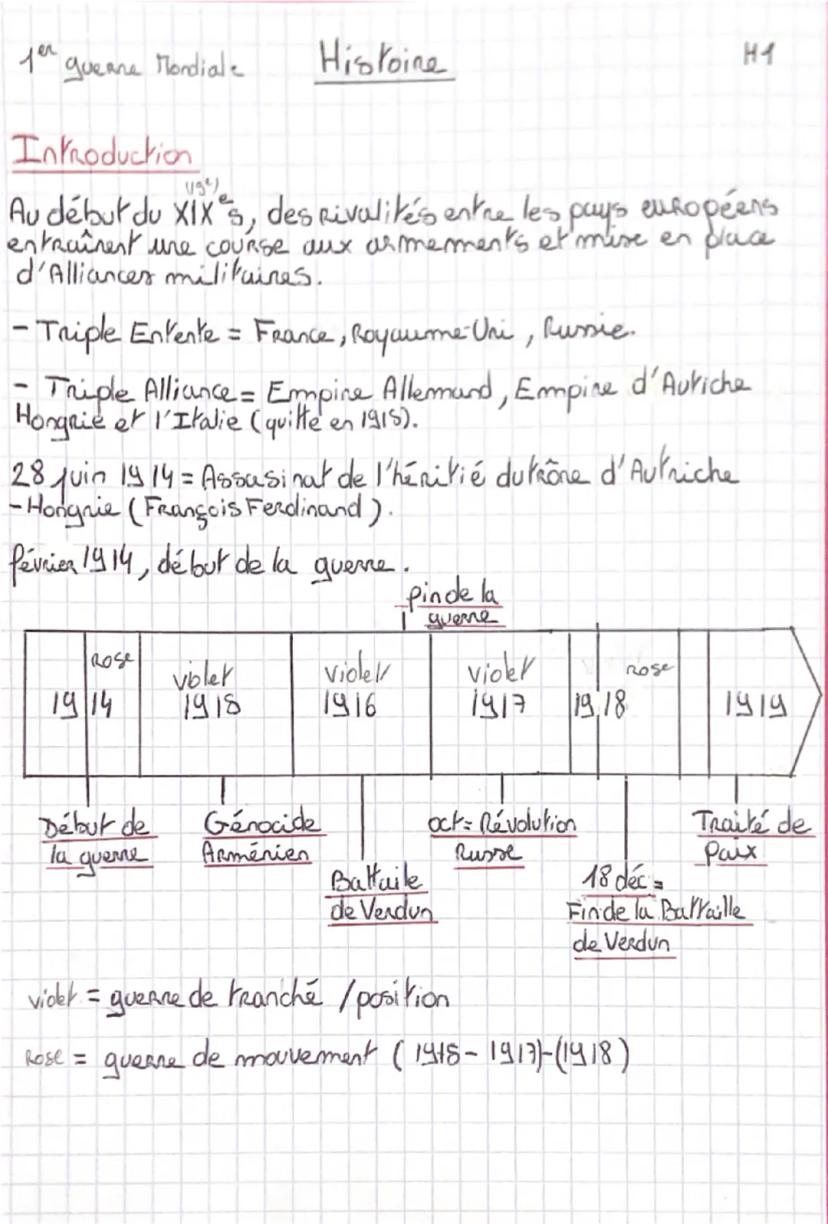 1er guerre Mondiale Histoire H1
Introduction
(19e)
Au début du XIXe s, des rivalités entre les pays européens
entraînent une course aux armements et mise en place
d'Alliances militaires.
- Triple Entente = France, Royaume-Uni, Russie.
- Triple Alliance = Empire Allemand, Empire d'Autiche
Hongrie et l'Italie (quitte en 1915).
28 juin 1914 = Assasinat de l'héritié du trône d'Autriche
-Hongrie (François Ferdinand).
février 1914, début de la guerre.
Fin de la
guerre
rose violet violet violet rose
1914 1915 1916 1917 1918 1919
Début de Génocide oct = Révolution Traité de
la guerre Arménien Russe Paix
Battaile 18 déc =
de Verdun Fin de la Battaille
de Verdun
violet = guerre de tranché / position
Rose = guerre de mouvement (1915 - 1917)-(1918)